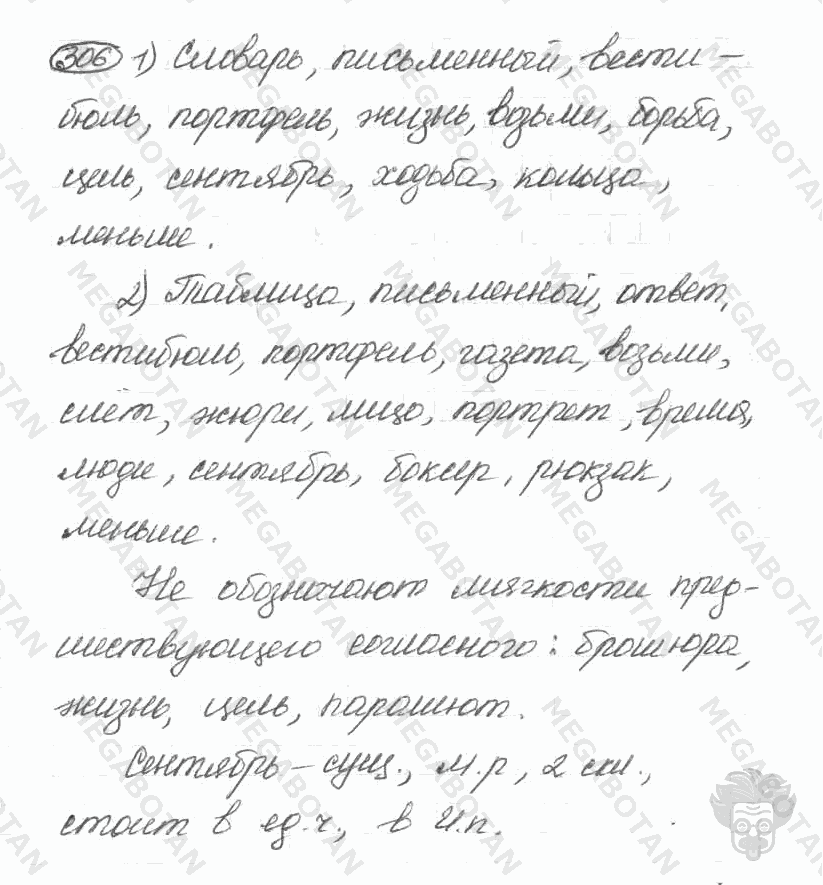 306 1) Словарь, письменный, вести-
бюль, портфель, жизнь, возьми, борьба,
цель, сентябрь, ходьба, кольца,
меньше.
2) Таблица, письменный, ответ,
вестибюль, портфель, газета, возьми,
слет, жюри, лицо, портрет, время,
люди, сентябрь, боксер, рюкзак,
меньше.
Не обозначают мягкости пред-
шествующего согласного: брошюра,
жизнь, цель, парашют.
Сентябрь – сущ., м.р, 2 скл.,
стоит в ед.ч., в И.п.
MEGABOTAN